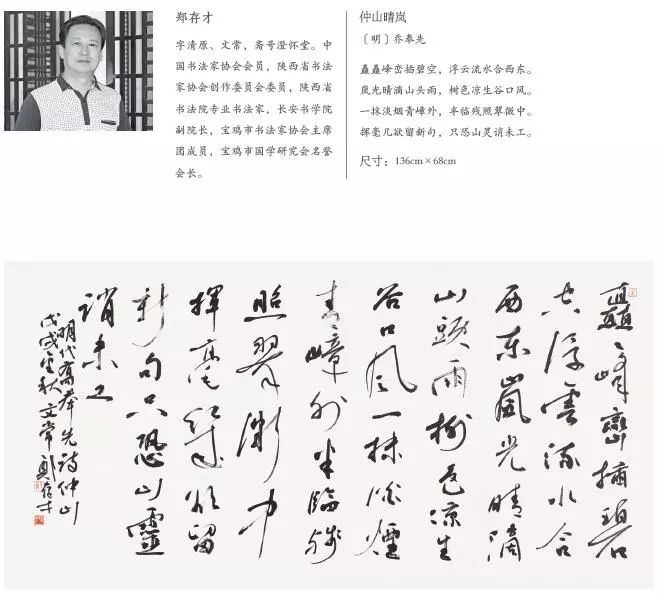 郑存才
字清原、文常，斋号澄怀堂。中
国书法家协会会员，陕西省书法
家协会创作委员会委员，陕西省
书法院专业书法家，长安书学院
副院长，宝鸡市书法家协会主席
团成员，宝鸡市国学研究会名誉
会长。
仲山晴岚
〔明〕乔奉先
矗矗峰峦插碧空，浮云流水合西东。
岚光晴滴山头雨，树色凉生谷口风。
一抹淡烟青嶂外，半临残照翠微中。
挥毫几欲留新句，只恐山灵诮未工。
尺寸：136cm×68cm
矗峰巒插碧
空浮雲流水合
西东嵐光晴滴
山頭雨樹色凉生
谷口风一抹淡煙
青嶂外半臨残
照翠微中
揮毫几欲留
新句只恐山靈
诮未工
明代喬奉先诗仲山
戊戌 秋文常鄭存才